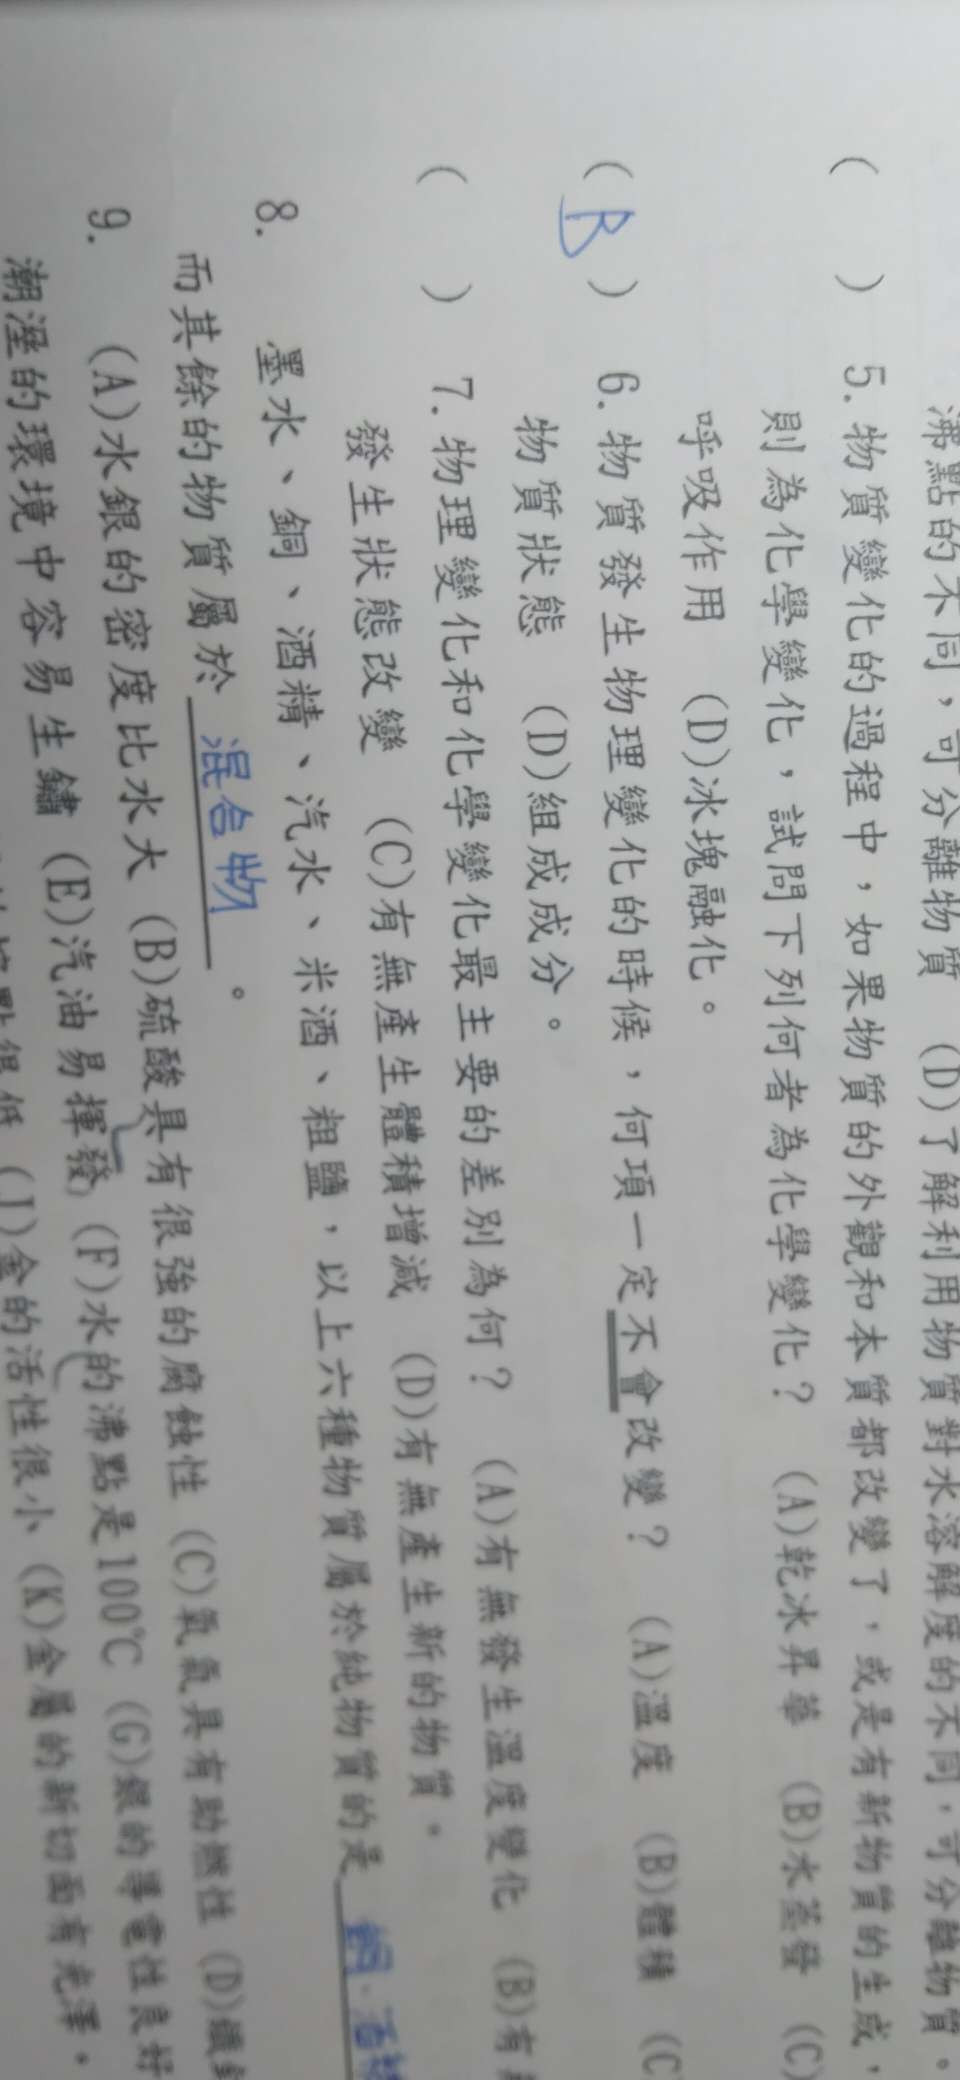 沸點的不同，可分離物質 (D)了解利用物質對水溶解度的不同，可分離物質。
( ) 5.物質變化的過程中，如果物質的外觀和本質都改變了，或是有新物質的生成，
則為化學變化，試問下列何者為化學變化？ (A)乾冰昇華 (B)水蒸發 (C)
呼吸作用 (D)冰塊融化。
( B ) 6.物質發生物理變化的時候，何項一定不會改變？ (A)溫度 (B)體積 (C
物質狀態 (D)組成成分。
( ) 7.物理變化和化學變化最主要的差別為何？ (A)有無發生溫度變化 (B)有
發生狀態改變 (C)有無產生體積增減 (D)有無產生新的物質。
8. 墨水、銅、酒精、汽水、米酒、粗鹽，以上六種物質屬於純物質的是 銅、酒精
而其餘的物質屬於 混合物 。
9. (A)水銀的密度比水大 (B)硫酸具有很強的腐蝕性 (C)氧氣具有助燃性 (D)鐵
潮溼的環境中容易生鏽 (E)汽油易揮發 (F)水的沸點是100℃ (G)銀的導電性良好
很低 (J)金的活性很小 (K)金屬的新切面有光澤。